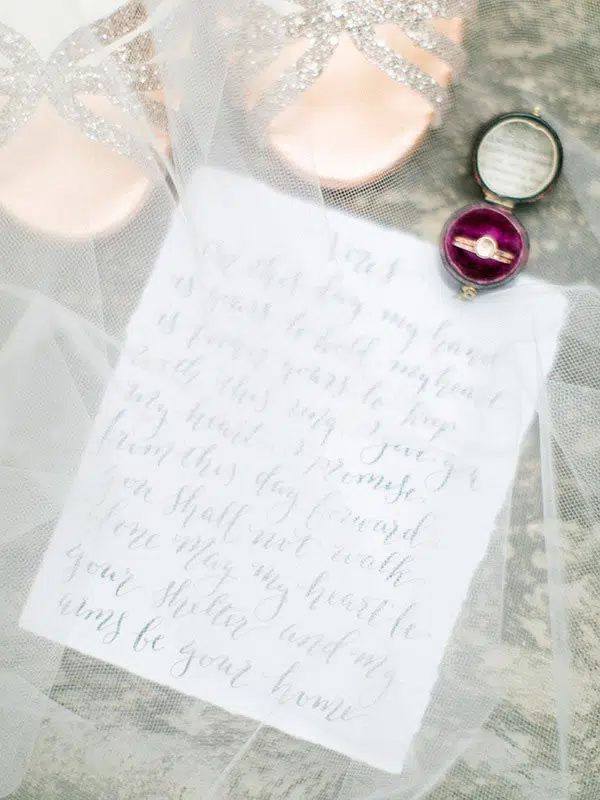 Vows
on this day my hand
is yours to hold my heart
is forever yours to keep
with this ring I give you
my heart I promise
from this day forward
you shall not walk
alone may my heart be
your shelter and my
arms be your home